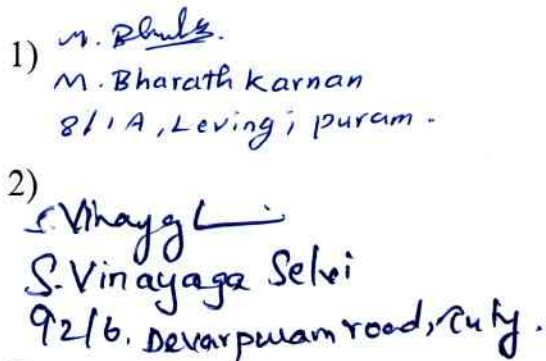 1)
M.
M. Bharath Karnan
8/1A, Levingi puram.
2)
S. Vinayg
S. Vinayaga Selvi
92/6, Devarpuram road, Tuty.